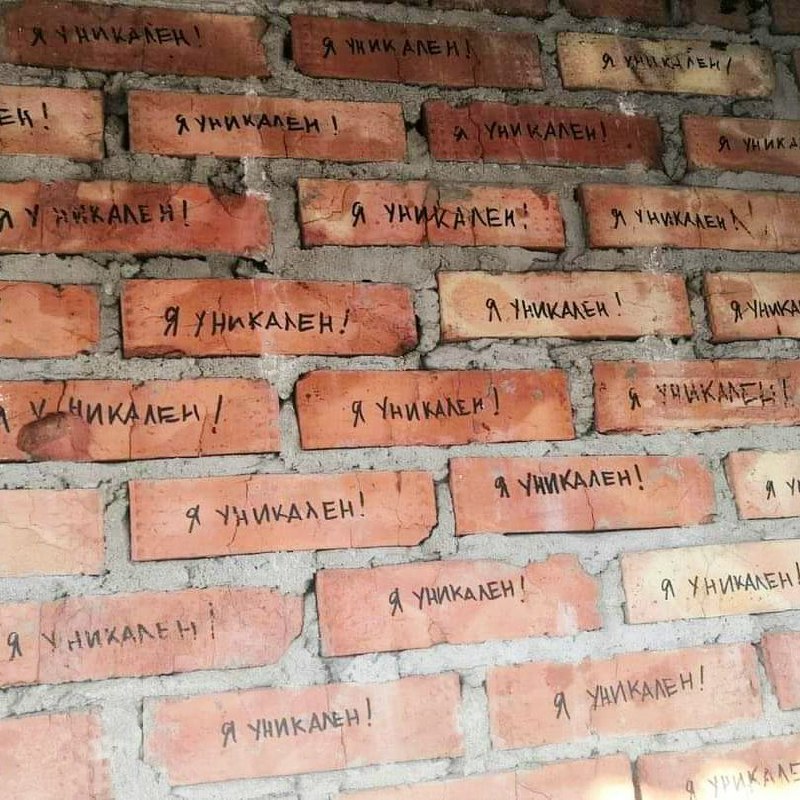 Я УНИКАЛЕН! Я УНИКАЛЕН! Я УНИКАЛЕН!
ЕН! Я УНИКАЛЕН! Я УНИКАЛЕН! Я УНИКА
Я УНИКАЛЕН! Я УНИКАЛЕН! Я УНИКАЛЕН!
Я УНИКАЛЕН! Я УНИКАЛЕН! Я УНИКА
Я УНИКАЛЕН! Я УНИКАЛЕН! Я УНИКАЛЕН!
Я УНИКАЛЕН! Я УНИКАЛЕН! Я У
Я УНИКАЛЕН! Я УНИКАЛЕН! Я УНИКАЛЕН!
Я УНИКАЛЕН! Я УНИКАЛЕН!
Я УНИКАЛЕ